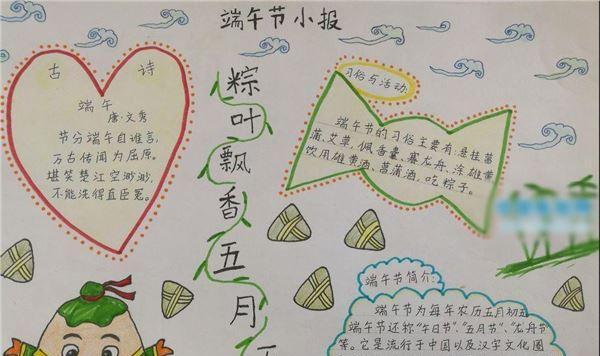 端午节小报
古 诗
端午
唐·文秀
节分端午自谁言,
万古传闻为屈原。
堪笑楚江空渺渺,
不能洗得直臣冤。
粽叶飘香五月
习俗与活动
端午节的习俗主要有:悬挂菖
蒲、艾草、佩香囊、赛龙舟、涂雄黄
饮用雄黄酒、菖蒲酒、吃粽子。
端午节简介:
端午节为每年农历五月初五
端午节还称"午日节"、"五月节"、"龙舟节"
等。它是流行于中国以及汉字文化圈